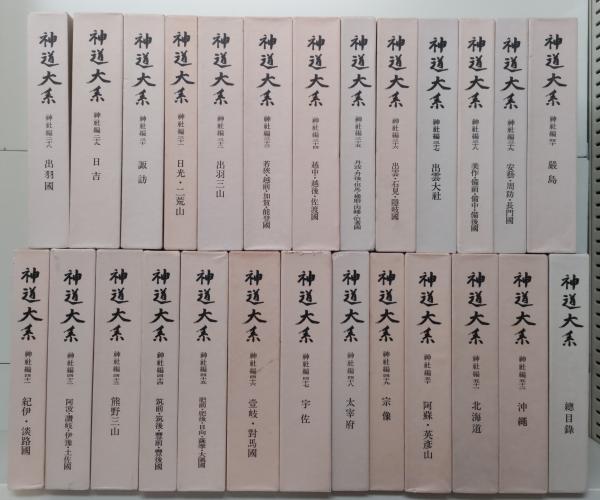 神道大系 神社編二十八 出羽國
神道大系 神社編二十九 日吉
神道大系 神社編三十 諏訪
神道大系 神社編三十一 日光・二荒山
神道大系 神社編三十二 出羽三山
神道大系 神社編三十三 若狹・越前・加賀・能登國
神道大系 神社編三十四 越中・越後・佐渡國
神道大系 神社編三十五 丹波・丹後・但馬・播磨・因幡・伯耆國
神道大系 神社編三十六 出雲・石見・隱岐國
神道大系 神社編三十七 出雲大社
神道大系 神社編三十八 美作・備前・備中・備後國
神道大系 神社編三十九 安藝・周防・長門國
神道大系 神社編四十 嚴島
神道大系 神社編四十一 紀伊・淡路國
神道大系 神社編四十二 阿波・讚岐・伊豫・土佐國
神道大系 神社編四十三 熊野三山
神道大系 神社編四十四 筑前・筑後・豐前・豐後國
神道大系 神社編四十五 肥前・肥後・日向・薩摩・大隅國
神道大系 神社編四十六 壹岐・對馬國
神道大系 神社編四十七 宇佐
神道大系 神社編四十八 太宰府
神道大系 神社編四十九 宗像
神道大系 神社編五十 阿蘇・英彦山
神道大系 神社編五十一 北海道
神道大系 神社編五十二 沖繩
神道大系 總目錄